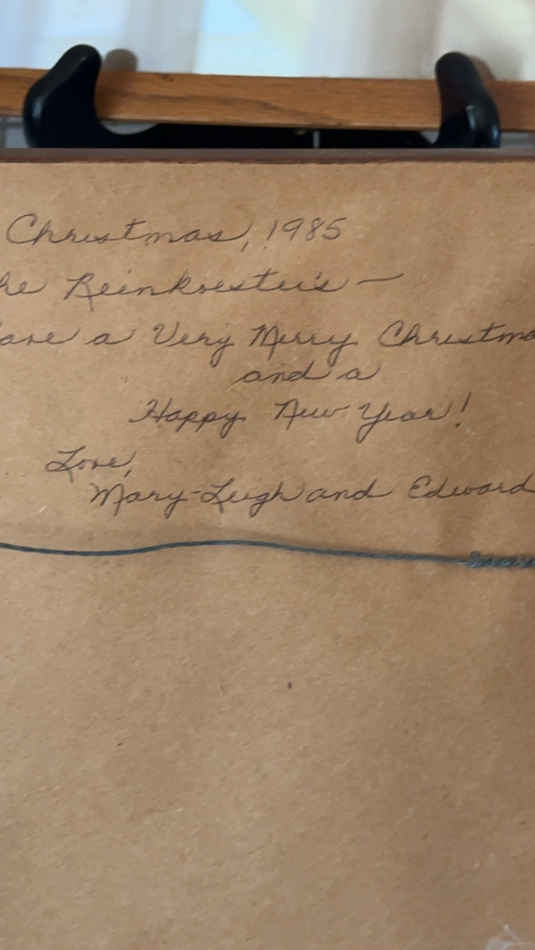 Christmas, 1985
he Reinkoester's —
ave a Very Merry Christma
and a
Happy New Year!
Love,
Mary-Leigh and Edward